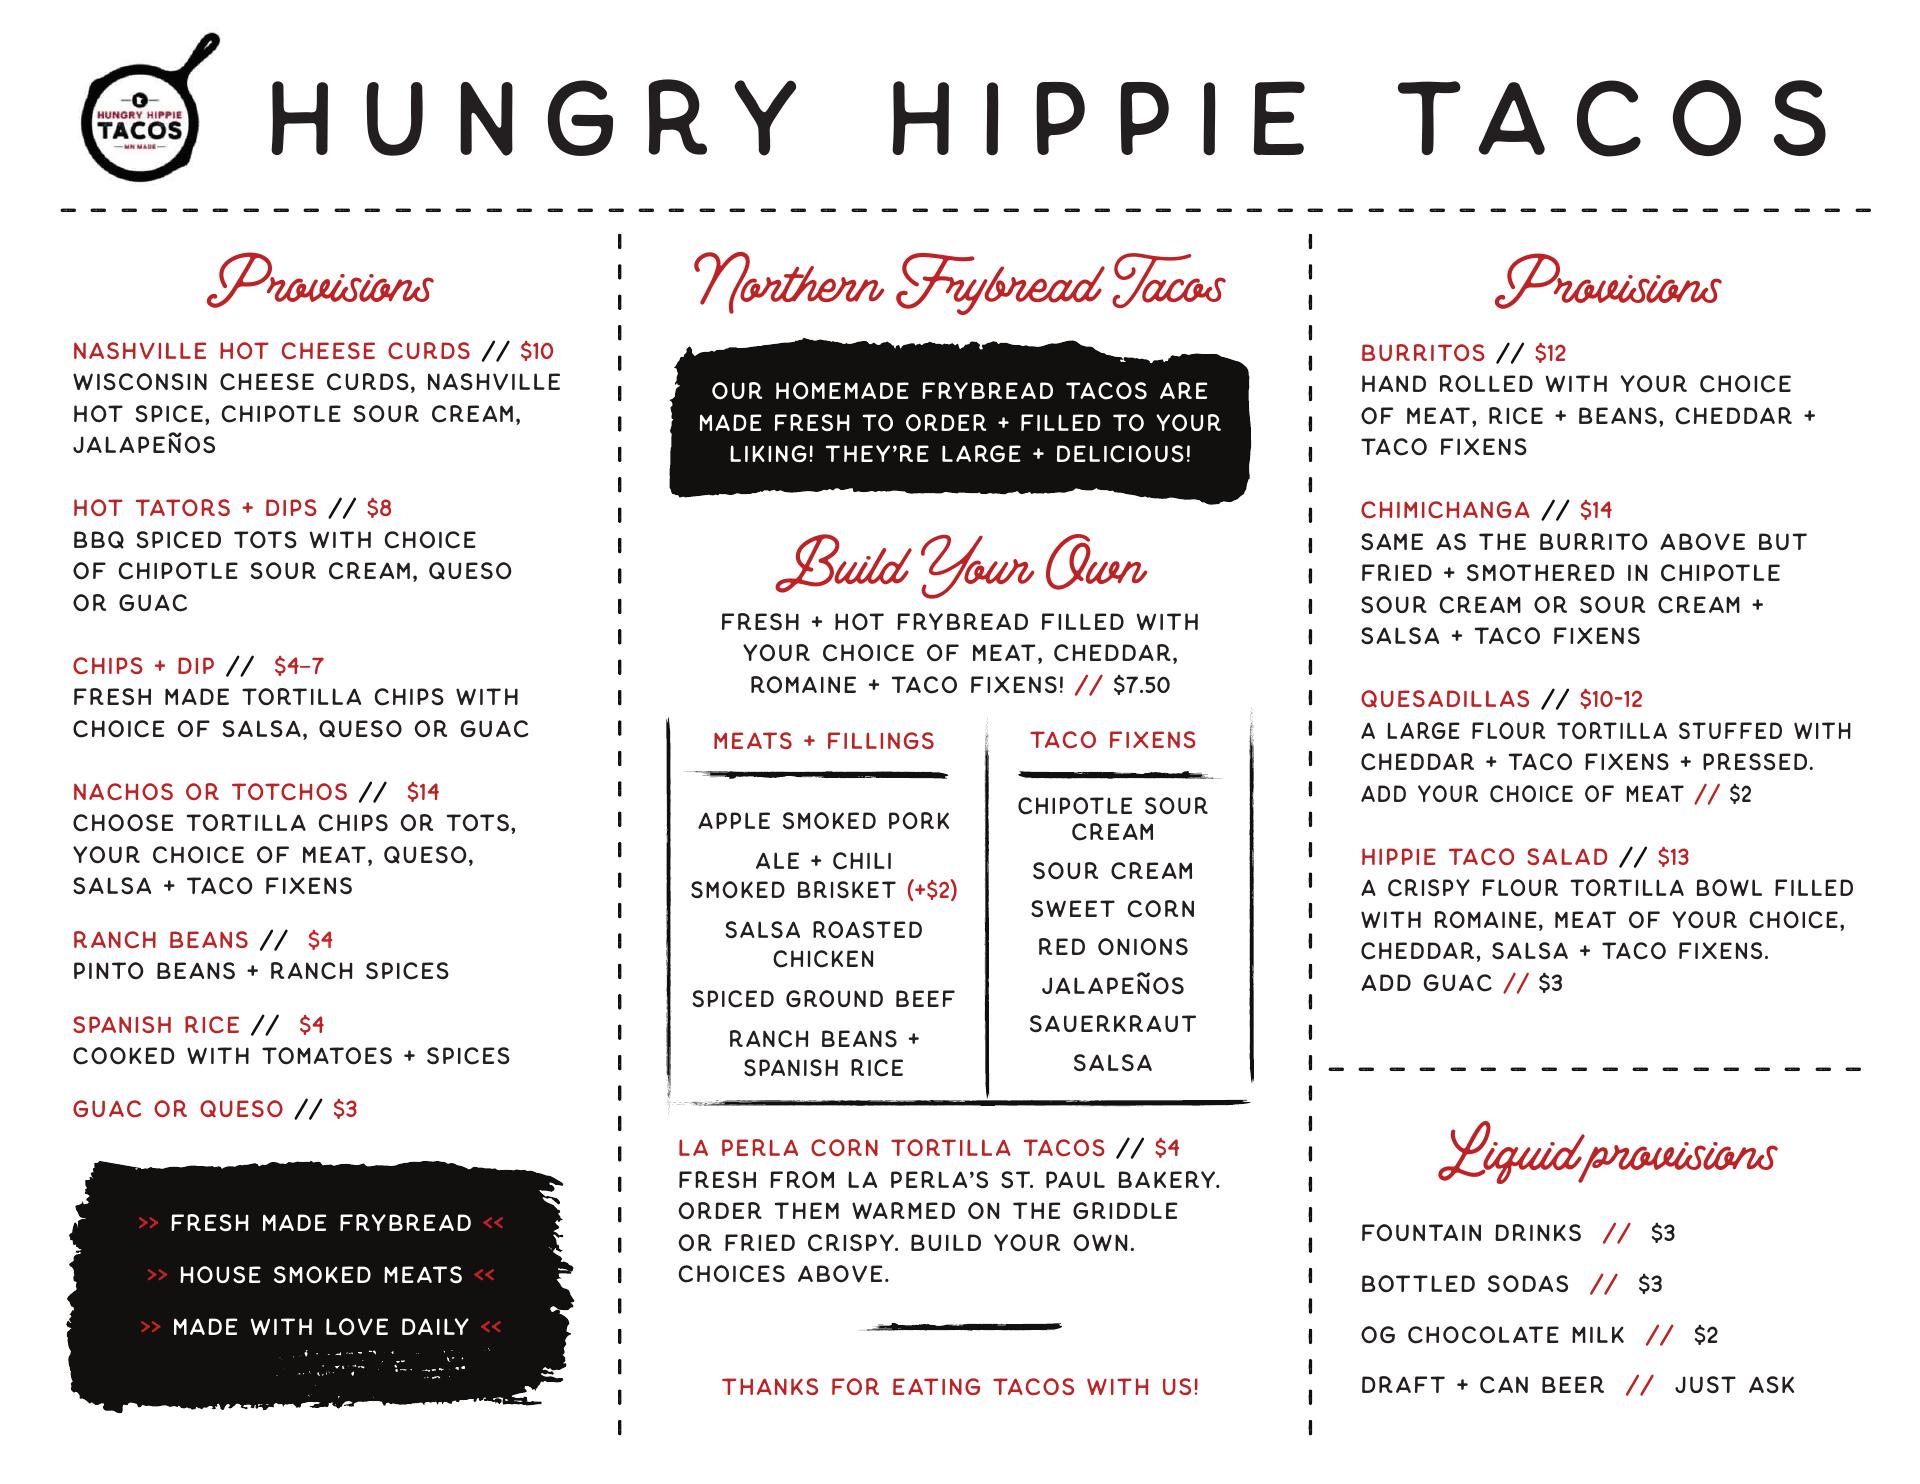 HUNGRY HIPPIE
TACOS
MN MADE
HUNGRY HIPPIE TACOS
Provisions
NASHVILLE HOT CHEESE CURDS // $10
WISCONSIN CHEESE CURDS, NASHVILLE
HOT SPICE, CHIPOTLE SOUR CREAM,
JALAPEÑOS
HOT TATORS + DIPS // $8
BBQ SPICED TOTS WITH CHOICE
OF CHIPOTLE SOUR CREAM, QUESO
OR GUAC
CHIPS + DIP // $4–7
FRESH MADE TORTILLA CHIPS WITH
CHOICE OF SALSA, QUESO OR GUAC
NACHOS OR TOTCHOS // $14
CHOOSE TORTILLA CHIPS OR TOTS,
YOUR CHOICE OF MEAT, QUESO,
SALSA + TACO FIXENS
RANCH BEANS // $4
PINTO BEANS + RANCH SPICES
SPANISH RICE // $4
COOKED WITH TOMATOES + SPICES
GUAC OR QUESO // $3
>> FRESH MADE FRYBREAD <<
>> HOUSE SMOKED MEATS <<
>> MADE WITH LOVE DAILY <<
Northern Frybread Tacos
OUR HOMEMADE FRYBREAD TACOS ARE
MADE FRESH TO ORDER + FILLED TO YOUR
LIKING! THEY'RE LARGE + DELICIOUS!
Build Your Own
FRESH + HOT FRYBREAD FILLED WITH
YOUR CHOICE OF MEAT, CHEDDAR,
ROMAINE + TACO FIXENS! // $7.50
MEATS + FILLINGS
APPLE SMOKED PORK
ALE + CHILI
SMOKED BRISKET (+$2)
SALSA ROASTED
CHICKEN
SPICED GROUND BEEF
RANCH BEANS +
SPANISH RICE
TACO FIXENS
CHIPOTLE SOUR
CREAM
SOUR CREAM
SWEET CORN
RED ONIONS
JALAPEÑOS
SAUERKRAUT
SALSA
LA PERLA CORN TORTILLA TACOS // $4
FRESH FROM LA PERLA'S ST. PAUL BAKERY.
ORDER THEM WARMED ON THE GRIDDLE
OR FRIED CRISPY. BUILD YOUR OWN.
CHOICES ABOVE.
THANKS FOR EATING TACOS WITH US!
Provisions
BURRITOS // $12
HAND ROLLED WITH YOUR CHOICE
OF MEAT, RICE + BEANS, CHEDDAR +
TACO FIXENS
CHIMICHANGA // $14
SAME AS THE BURRITO ABOVE BUT
FRIED + SMOTHERED IN CHIPOTLE
SOUR CREAM OR SOUR CREAM +
SALSA + TACO FIXENS
QUESADILLAS // $10-12
A LARGE FLOUR TORTILLA STUFFED WITH
CHEDDAR + TACO FIXENS + PRESSED.
ADD YOUR CHOICE OF MEAT // $2
HIPPIE TACO SALAD // $13
A CRISPY FLOUR TORTILLA BOWL FILLED
WITH ROMAINE, MEAT OF YOUR CHOICE,
CHEDDAR, SALSA + TACO FIXENS.
ADD GUAC // $3
Liquid provisions
FOUNTAIN DRINKS // $3
BOTTLED SODAS // $3
OG CHOCOLATE MILK // $2
DRAFT + CAN BEER // JUST ASK